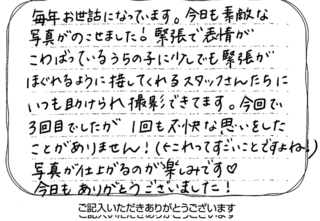 毎年お世話になっています。今日も素敵な
写真がのこせました！緊張で表情が
こわばっているうちの子に少しでも緊張が
ほぐれるように接してくれるスタッフさんたちに
いつも助けられ撮影できてます。今回で
3回目でしたが1回も不快な思いをした
ことがありません！(←これってすごいことですよね！)
写真が仕上がるのが楽しみです♡
今日もありがとうございました！
ご記入いただきありがとうございます